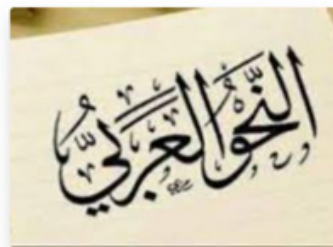 النَّحْوُ العَرَبِيّ